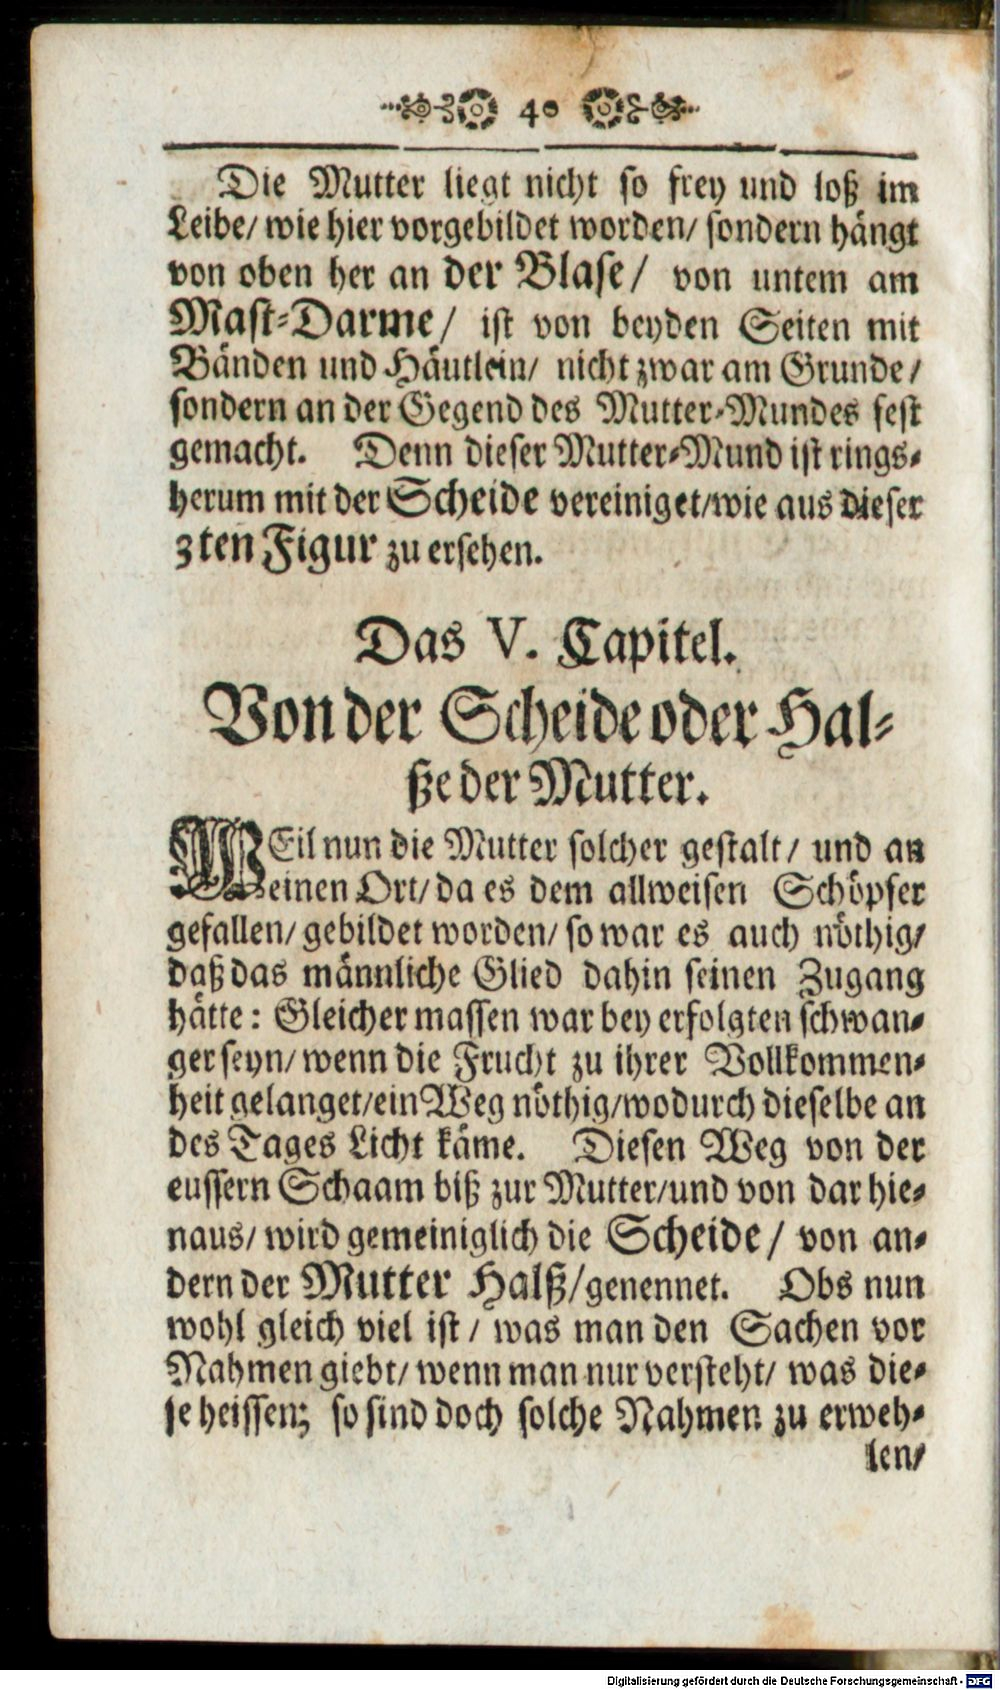 40
Die Mutter liegt nicht so frey und loß im
Leibe/ wie hier vorgebildet worden/ sondern hängt
von oben her an der Blase/ von untem am
Mast-Darme/ ist von beyden Seiten mit
Bänden und Häutlein/ nicht zwar am Grunde/
sondern an der Gegend des Mutter-Mundes fest
gemacht. Denn dieser Mutter-Mund ist rings-
herum mit der Scheide vereiniget/wie aus dieser
3ten Figur zu ersehen.
Das V. Capitel.
Von der Scheide oder Hal-
ße der Mutter.
WEil nun die Mutter solcher gestalt/ und an
einen Ort/ da es dem allweisen Schöpfer
gefallen/ gebildet worden/ so war es auch nöthig/
daß das männliche Glied dahin seinen Zugang
hätte: Gleicher massen war bey erfolgten schwan-
ger seyn/ wenn die Frucht zu ihrer Vollkommen-
heit gelanget/ein Weg nöthig/wodurch dieselbe an
des Tages Licht käme. Diesen Weg von der
eussern Schaam biß zur Mutter/und von dar hie-
naus/ wird gemeiniglich die Scheide/ von an-
dern der Mutter Halß/genennet. Obs nun
wohl gleich viel ist/ was man den Sachen vor
Nahmen giebt/ wenn man nur versteht/ was die-
se heissen; so sind doch solche Nahmen zu erweh-
len/
Digitalisierung gefördert durch die Deutsche Forschungsgemeinschaft - DFG